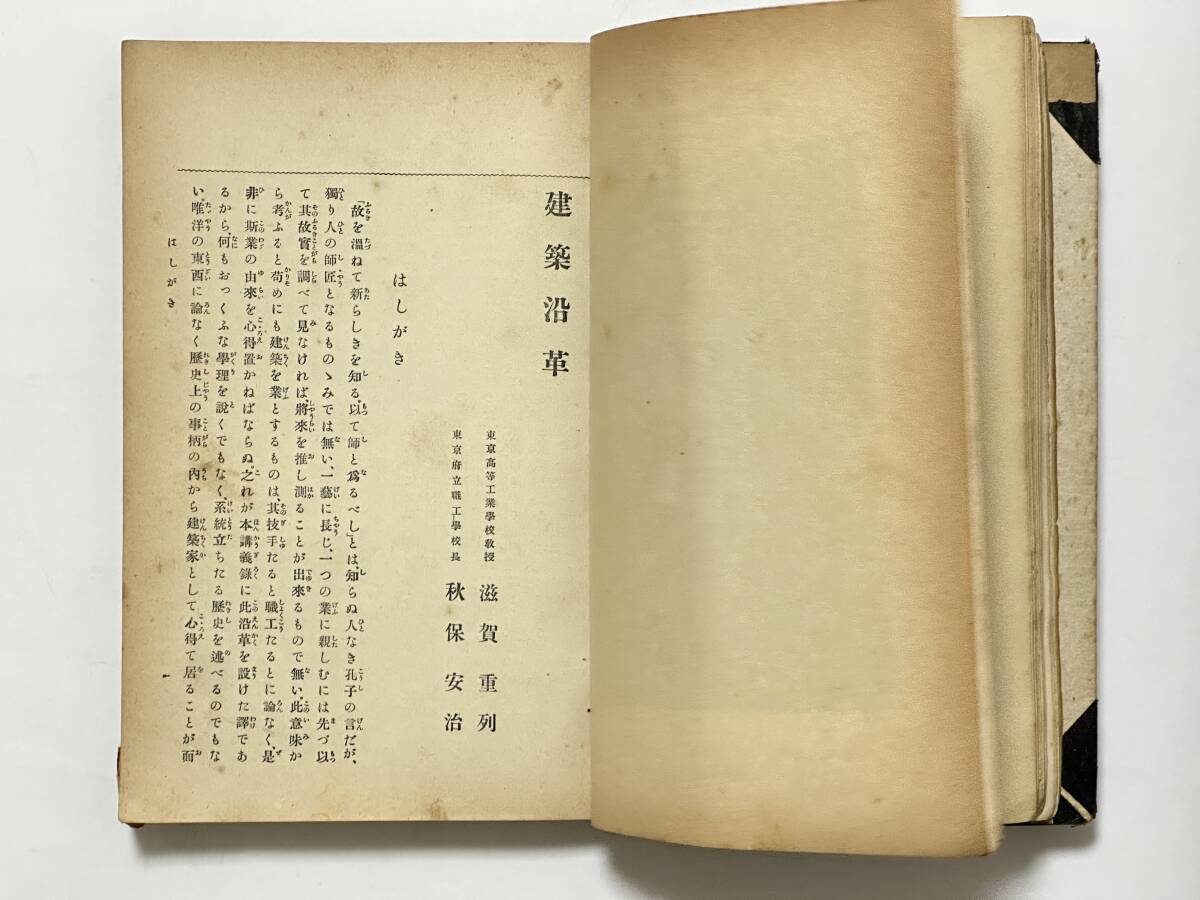 建築沿革
東京高等工業學校敎授 滋賀重列
東京府立職工學校長 秋保安治
はしがき
「故を溫ねて新らしきを知る、以て師と爲るべし」とは、知らぬ人なき孔子の言だが、
獨り人の師匠となるものゝみでは無い、一藝に長じ、一つの業に親しむには先づ以
て其故實を調べて見なければ、將來を推し測ることが出來るもので無い。此意味か
ら考ふると苟めにも建築を業とするものは、其技手たると職工たるとに論なく、是
非に斯業の由來を心得置かねばならぬ。之れが本講義錄に此沿革を設けた譯であ
るから、何もおっくふな學理を說くでもなく、系統立ちたる歷史を述べるのでもな
い。唯洋の東西に論なく歷史上の事柄の內から建築家として心得て居ることが面
はしがき
一